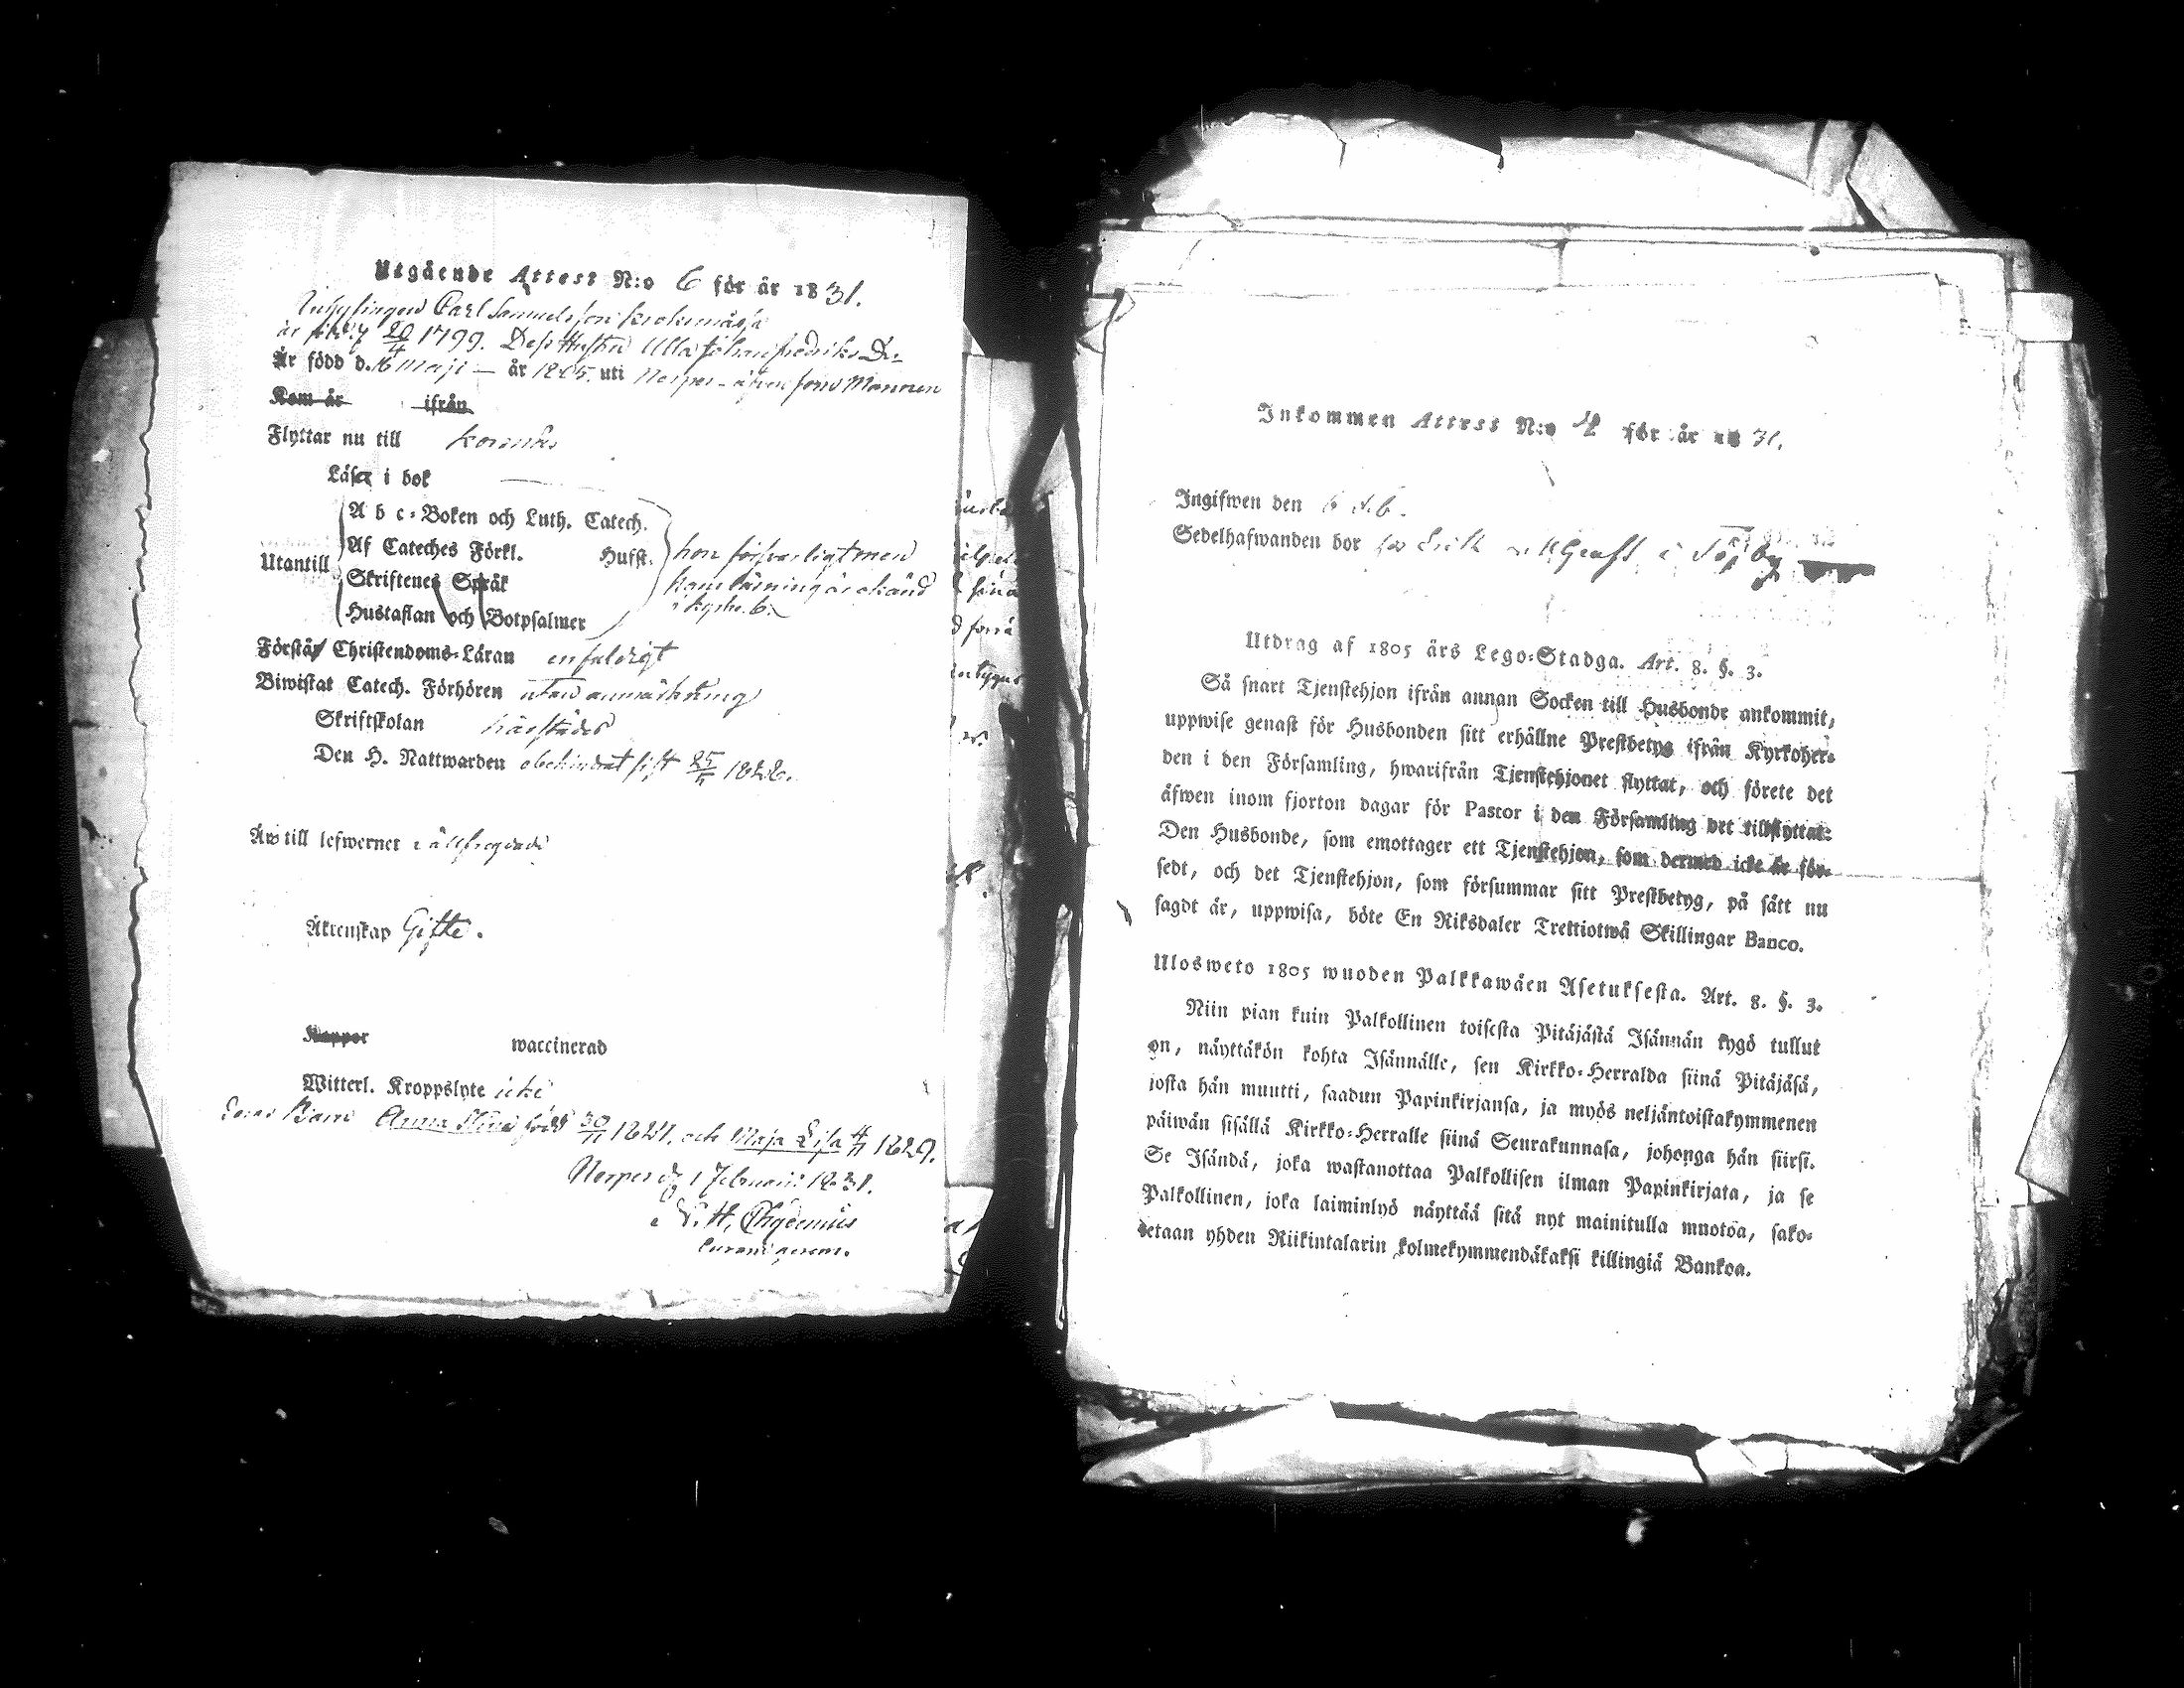 Utgående Attest N:o 6 för år 1831.
Inhysingen Carl Samuelsson
är född 20/4 1799. Dess Hustru Ulla Johan fredriks Dr
Är född d. 16 Maji — år 1805. uti Nerpes - äfven som Mannen
Kom år ifrån
Flyttar nu till Korsnäs
Läser i bok
Utantill
A b c-Boken och Luth. Catech.
Af Cateches Förkl. Hufst.
Skriftenes Språk
Hustaflan och Botpsalmer
hon försvarligt men
hans läsning är okänd
Förstår Christendoms-Läran enfaldigt
Biwistat Catech. Förhören utan anmärkning
Skriftskolan härstädes
Den H. Nattwarden obehindrat sist 25/
Äro till lefwernet
Äktenskap Gifte.
Koppor waccinerad
Witterl. Kroppslyte icke
Deras Barn Anna född 30/11 och Maja Lisa 1829.
Nerpes d. 1 Februari 1831.
N. H. Chydenius
Inkommen Attest N:o 4 för år 1831.
Ingifwen den 6
Sedelhafwanden bor hos Erik i
Utdrag af 1805 års Lego-Stadga. Art. 8. §. 3.
Så snart Tjenstehjon ifrån annan Socken till Husbonde ankommit,
uppwise genast för Husbonden sitt erhållne Prestbetyg ifrån Kyrkoher-
den i den Församling, hwarifrån Tjenstehjonet flyttat, och förete det
äfwen inom fjorton dagar för Pastor i den Församling det tillflyttat.
Den Husbonde, som emottager ett Tjenstehjon, som dermed icke är för-
sedt, och det Tjenstehjon, som försummar sitt Prestbetyg, på sätt nu
sagdt är, uppwisa, böte En Riksdaler Trettiotwå Skillingar Banco.
Ulosweto 1805 wuoden Palkkawäen Asetuksesta. Art. 8. §. 3.
Niin pian kuin Palkollinen toisesta Pitäjästä Isännän tygö tullut
on, näyttäkön kohta Isännälle, sen Kirkko-Herralda siinä Pitäjäsä,
josta hän muutti, saadun Papinkirjansa, ja myös neljäntoistakymmenen
päiwän sisällä Kirkko-Herralle siinä Seurakunnasa, johonga hän siirsi.
Se Isändä, joka wastanottaa Palkollisen ilman Papinkirjata, ja se
Palkollinen, joka laiminlyö näyttää sitä nyt mainitulla muotoa, sako-
tetaan yhden Riikintalarin kolmekymmendäkaksi killingiä Bankoa.